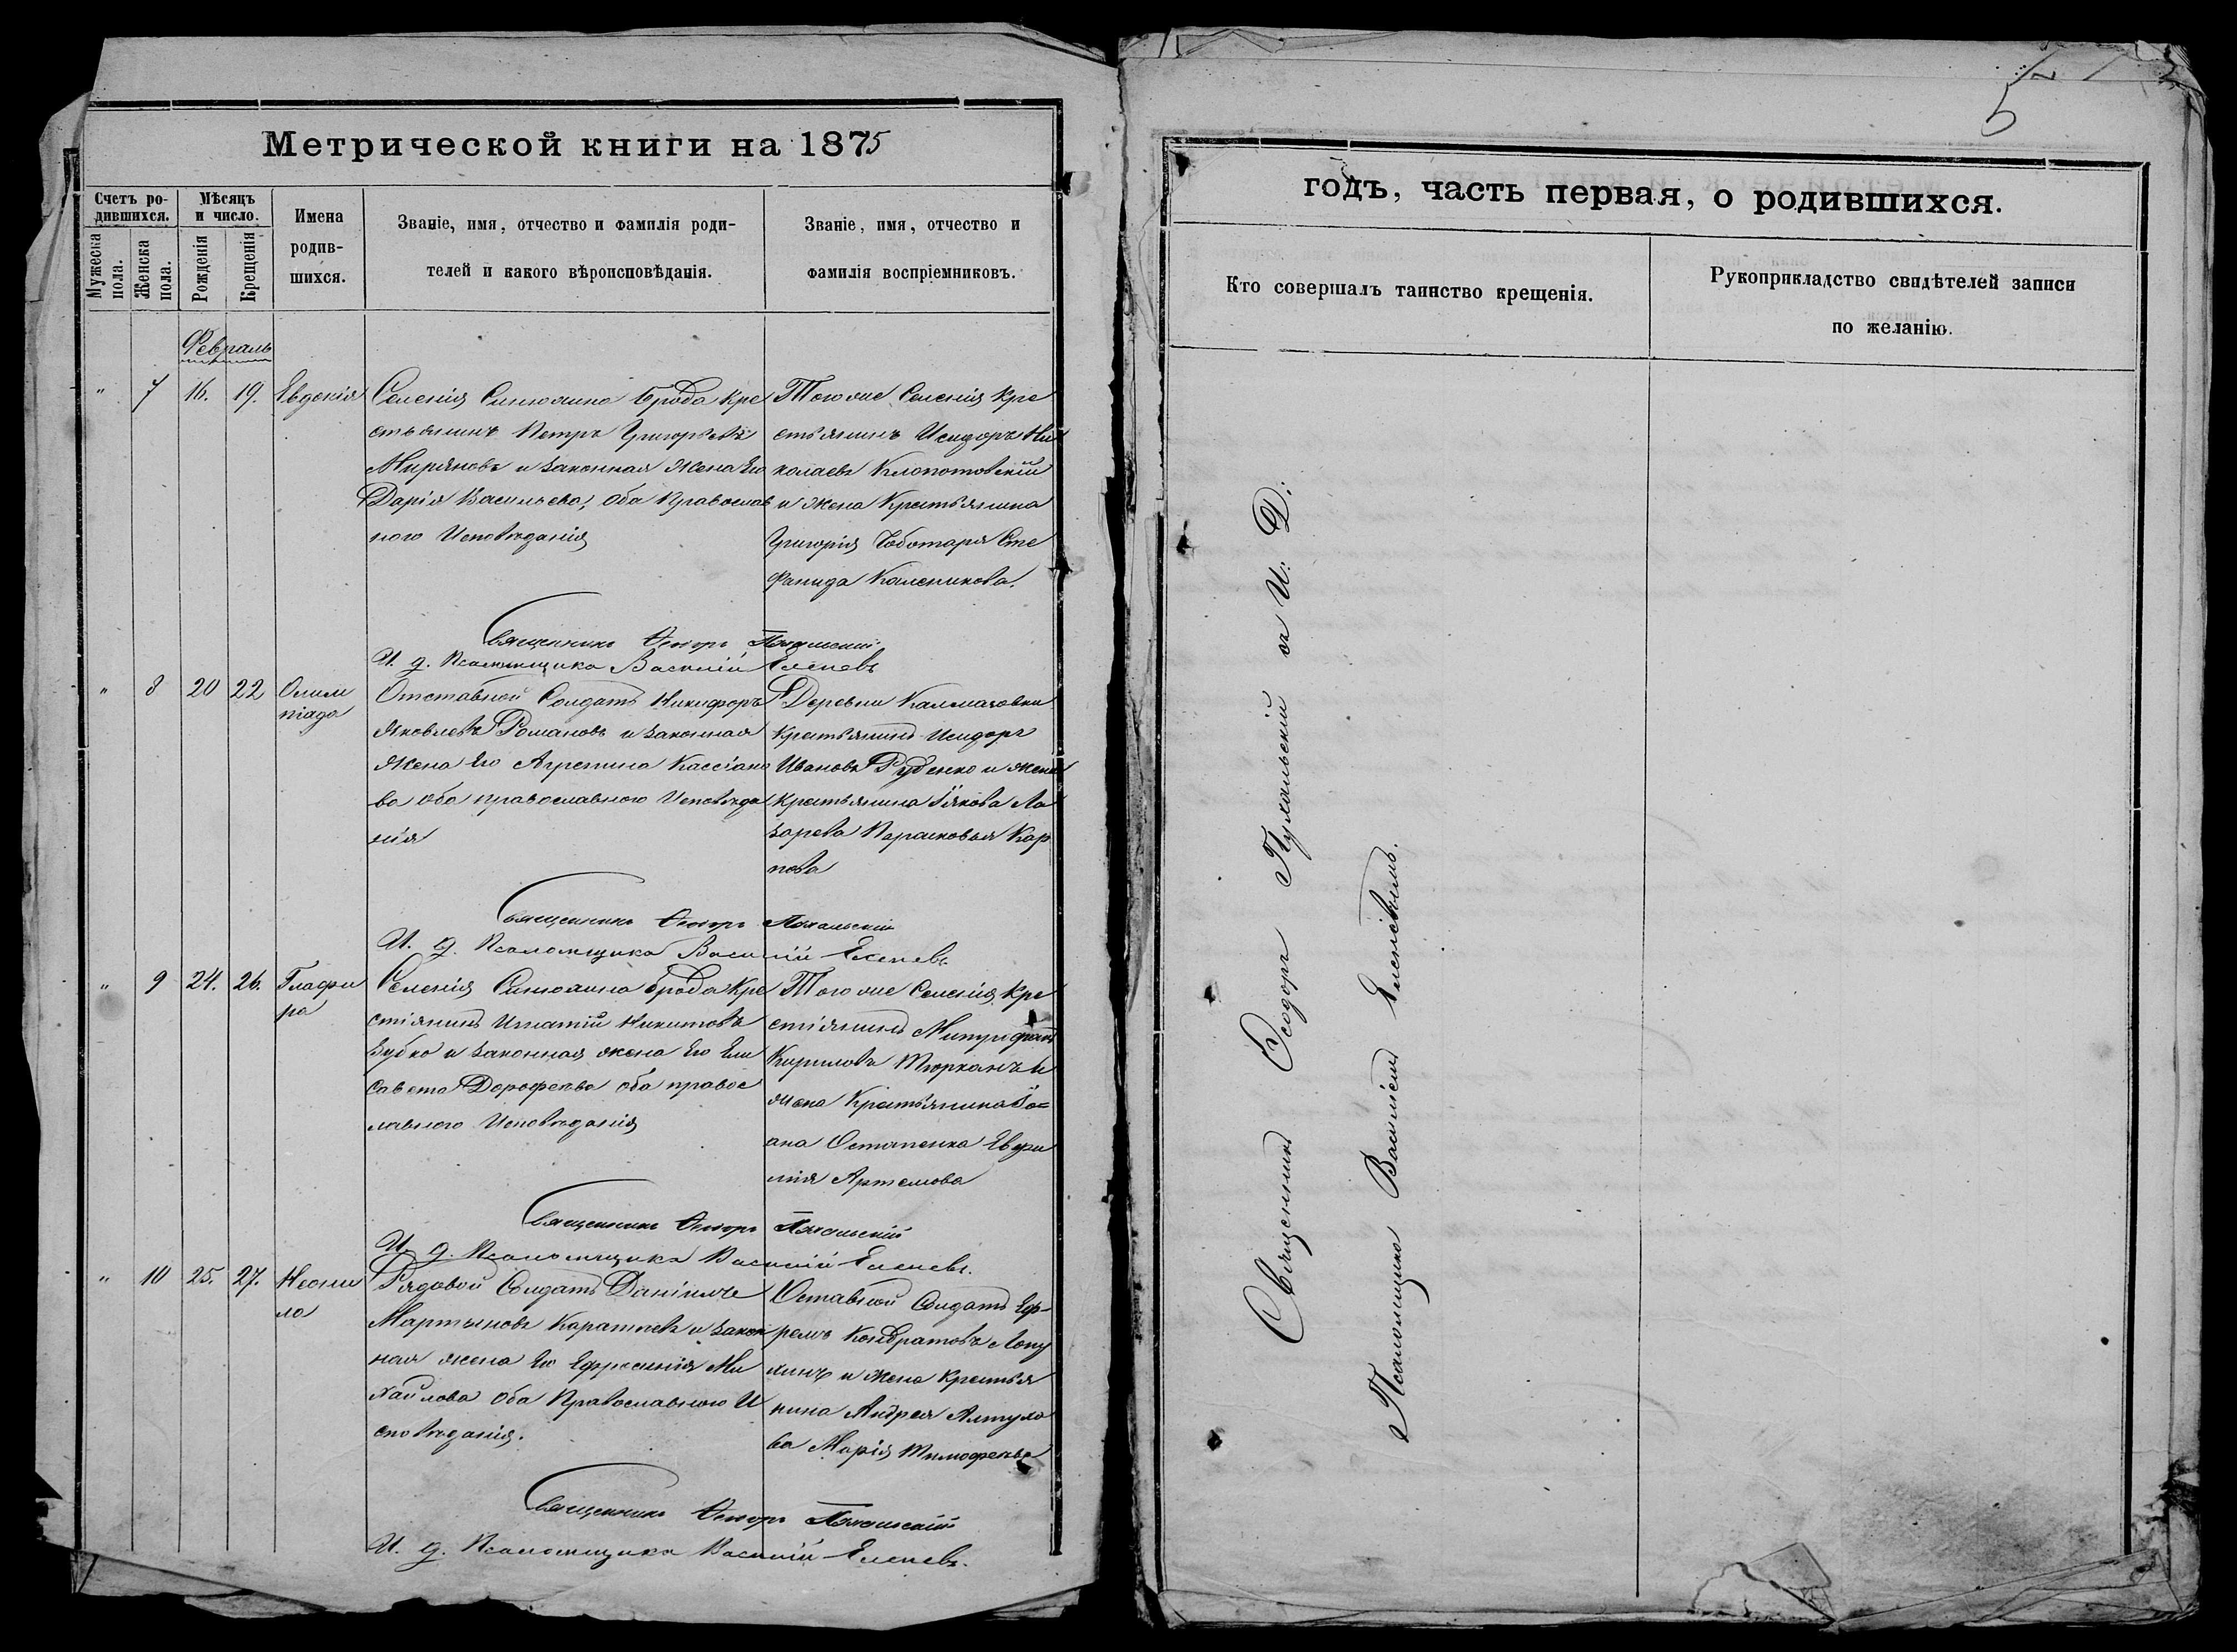 Метрической книги на 1875
Счетъ ро-
дившихся.
Мужеска
пола.
Женска
пола.
Мѣсяцъ
и число.
Рожденія
Крещенія
Имена
родив-
шихся.
Званіе, имя, отчество и фамилія роди-
телей и какого вѣроисповѣданія.
Званіе, имя, отчество и
фамилія воспріемниковъ.
Февраль
" 7 16. 19. Евдокія
Селенія Синюхина Брода Кре
стьянинъ Петръ Григорьевъ
Миряновъ и законная Жена Его
Дарія Васильева, Оба Православ
ного Исповѣданія
Того же Селенія Кре
стьянинъ Исидоръ Ни
колаевъ Клопотовскій
и Жена Крестьянина
Григорія Чоботаря Сте
фанида Каленикова.
Священникъ Ѳеодоръ Пухальскій
И. д. Псаломщика Василій Еленевъ
" 8 20 22 Олим
піада
Отставной Солдатъ Никифоръ
Яковлевъ Романовъ и законная
Жена Его Агрепина Кассіано
ва Оба православного Исповѣда
нія
Деревни Калмазовки
Крестьянинъ Исидоръ
Ивановъ Руденко и жена
Крестьянина Іякова Ла
зарева Парасковья Кар
пова
Священникъ Ѳеодоръ Пухальскій
И. д. Псаломщика Василій Еленевъ
" 9 24. 26. Глафи
ра
Селенія Синюхина брода Кре
стіянинъ Игнатій Никитовъ
Зубко и законная жена Его Ели
савета Дорофеева оба правос
лавного Исповѣданія
Того же Селенія Кре
стіянинъ Митрофанъ
Кириловъ Тюрканъ и
жена Крестьянина Іо=
ана Остапенка Евфи
мія Артемова
Священникъ Ѳеодоръ Пухальскій
И. д. Псаломщика Василій Еленевъ.
" 10 25. 27. Неони
ла
Рядовой Солдатъ Даніилъ
Мартыновъ Каратѣевъ и закон
ная жена Его Ефросинія Ми
хайлова Оба Православного И
сповѣданія.
Оставной Солдатъ Еф-
ремъ Кондратовъ Лопу
хинъ и жена Крестья
нина Андрея Алтухо
ва Марія Тимофеева
Священникъ Ѳеодоръ Пухальскій
И. д. Псаломщика Василій Еленевъ.
5
годъ, часть первая, о родившихся.
Кто совершалъ таинство крещенія.
Рукоприкладство свидѣтелей записи
по желанію.
Священникъ Ѳеодоръ Пухальскій съ И. Д:
Псаломщика Василіемъ Еленевымъ.